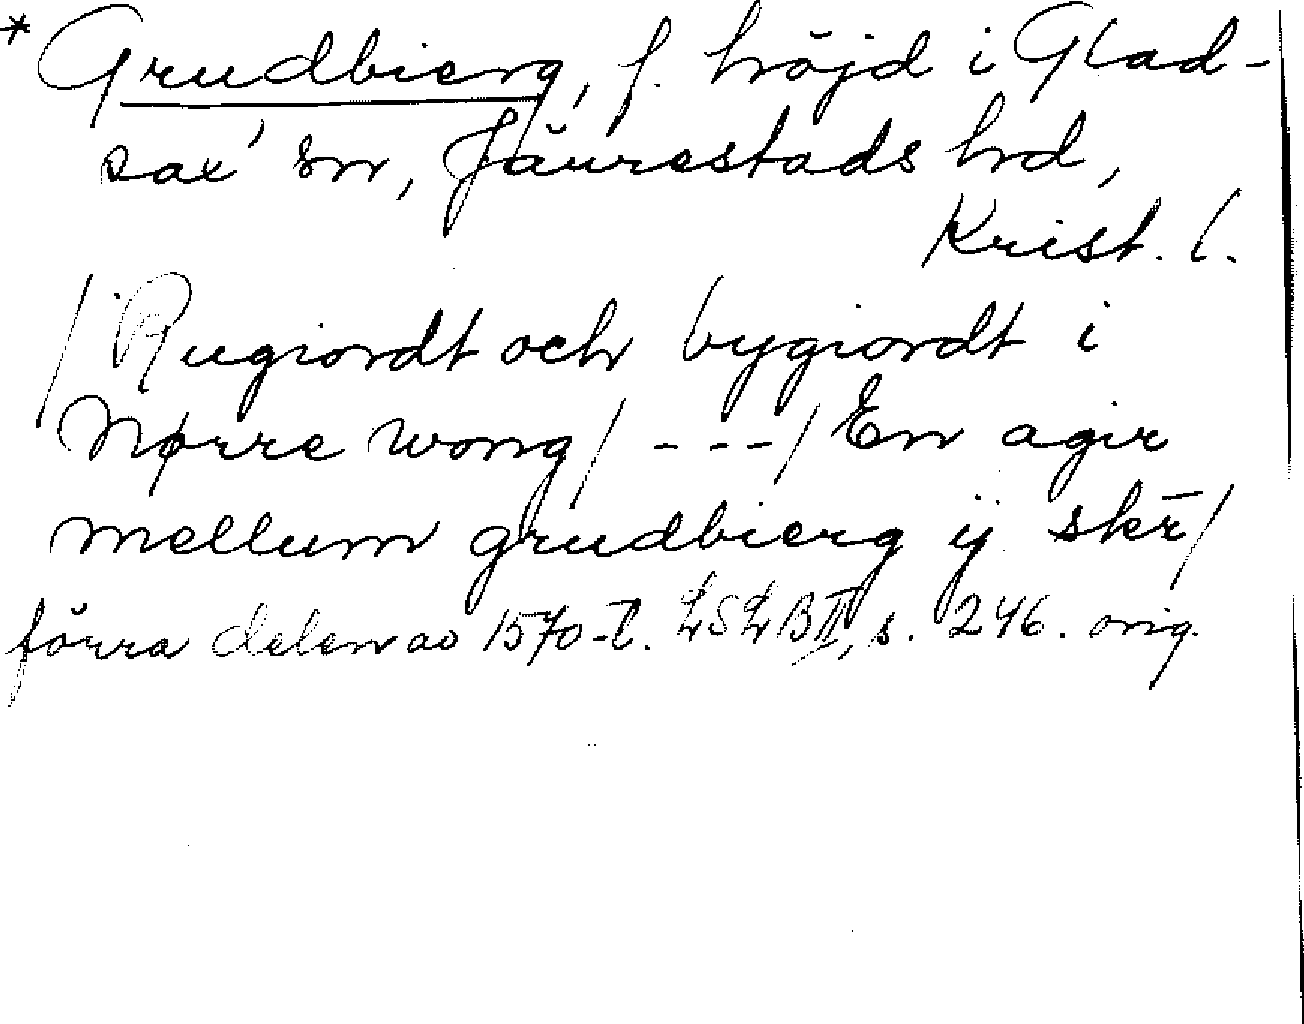 * Grudbierg, f. höjd i Glad-
sax' sn, Järrestads hd,
Krist. l.
/Rugiordt och bygiordt i
Nørre wong/---/En agir
mellum grudbierg ij skr̄/
förra delen av 1570-t. LSLB II, s. 246. orig.